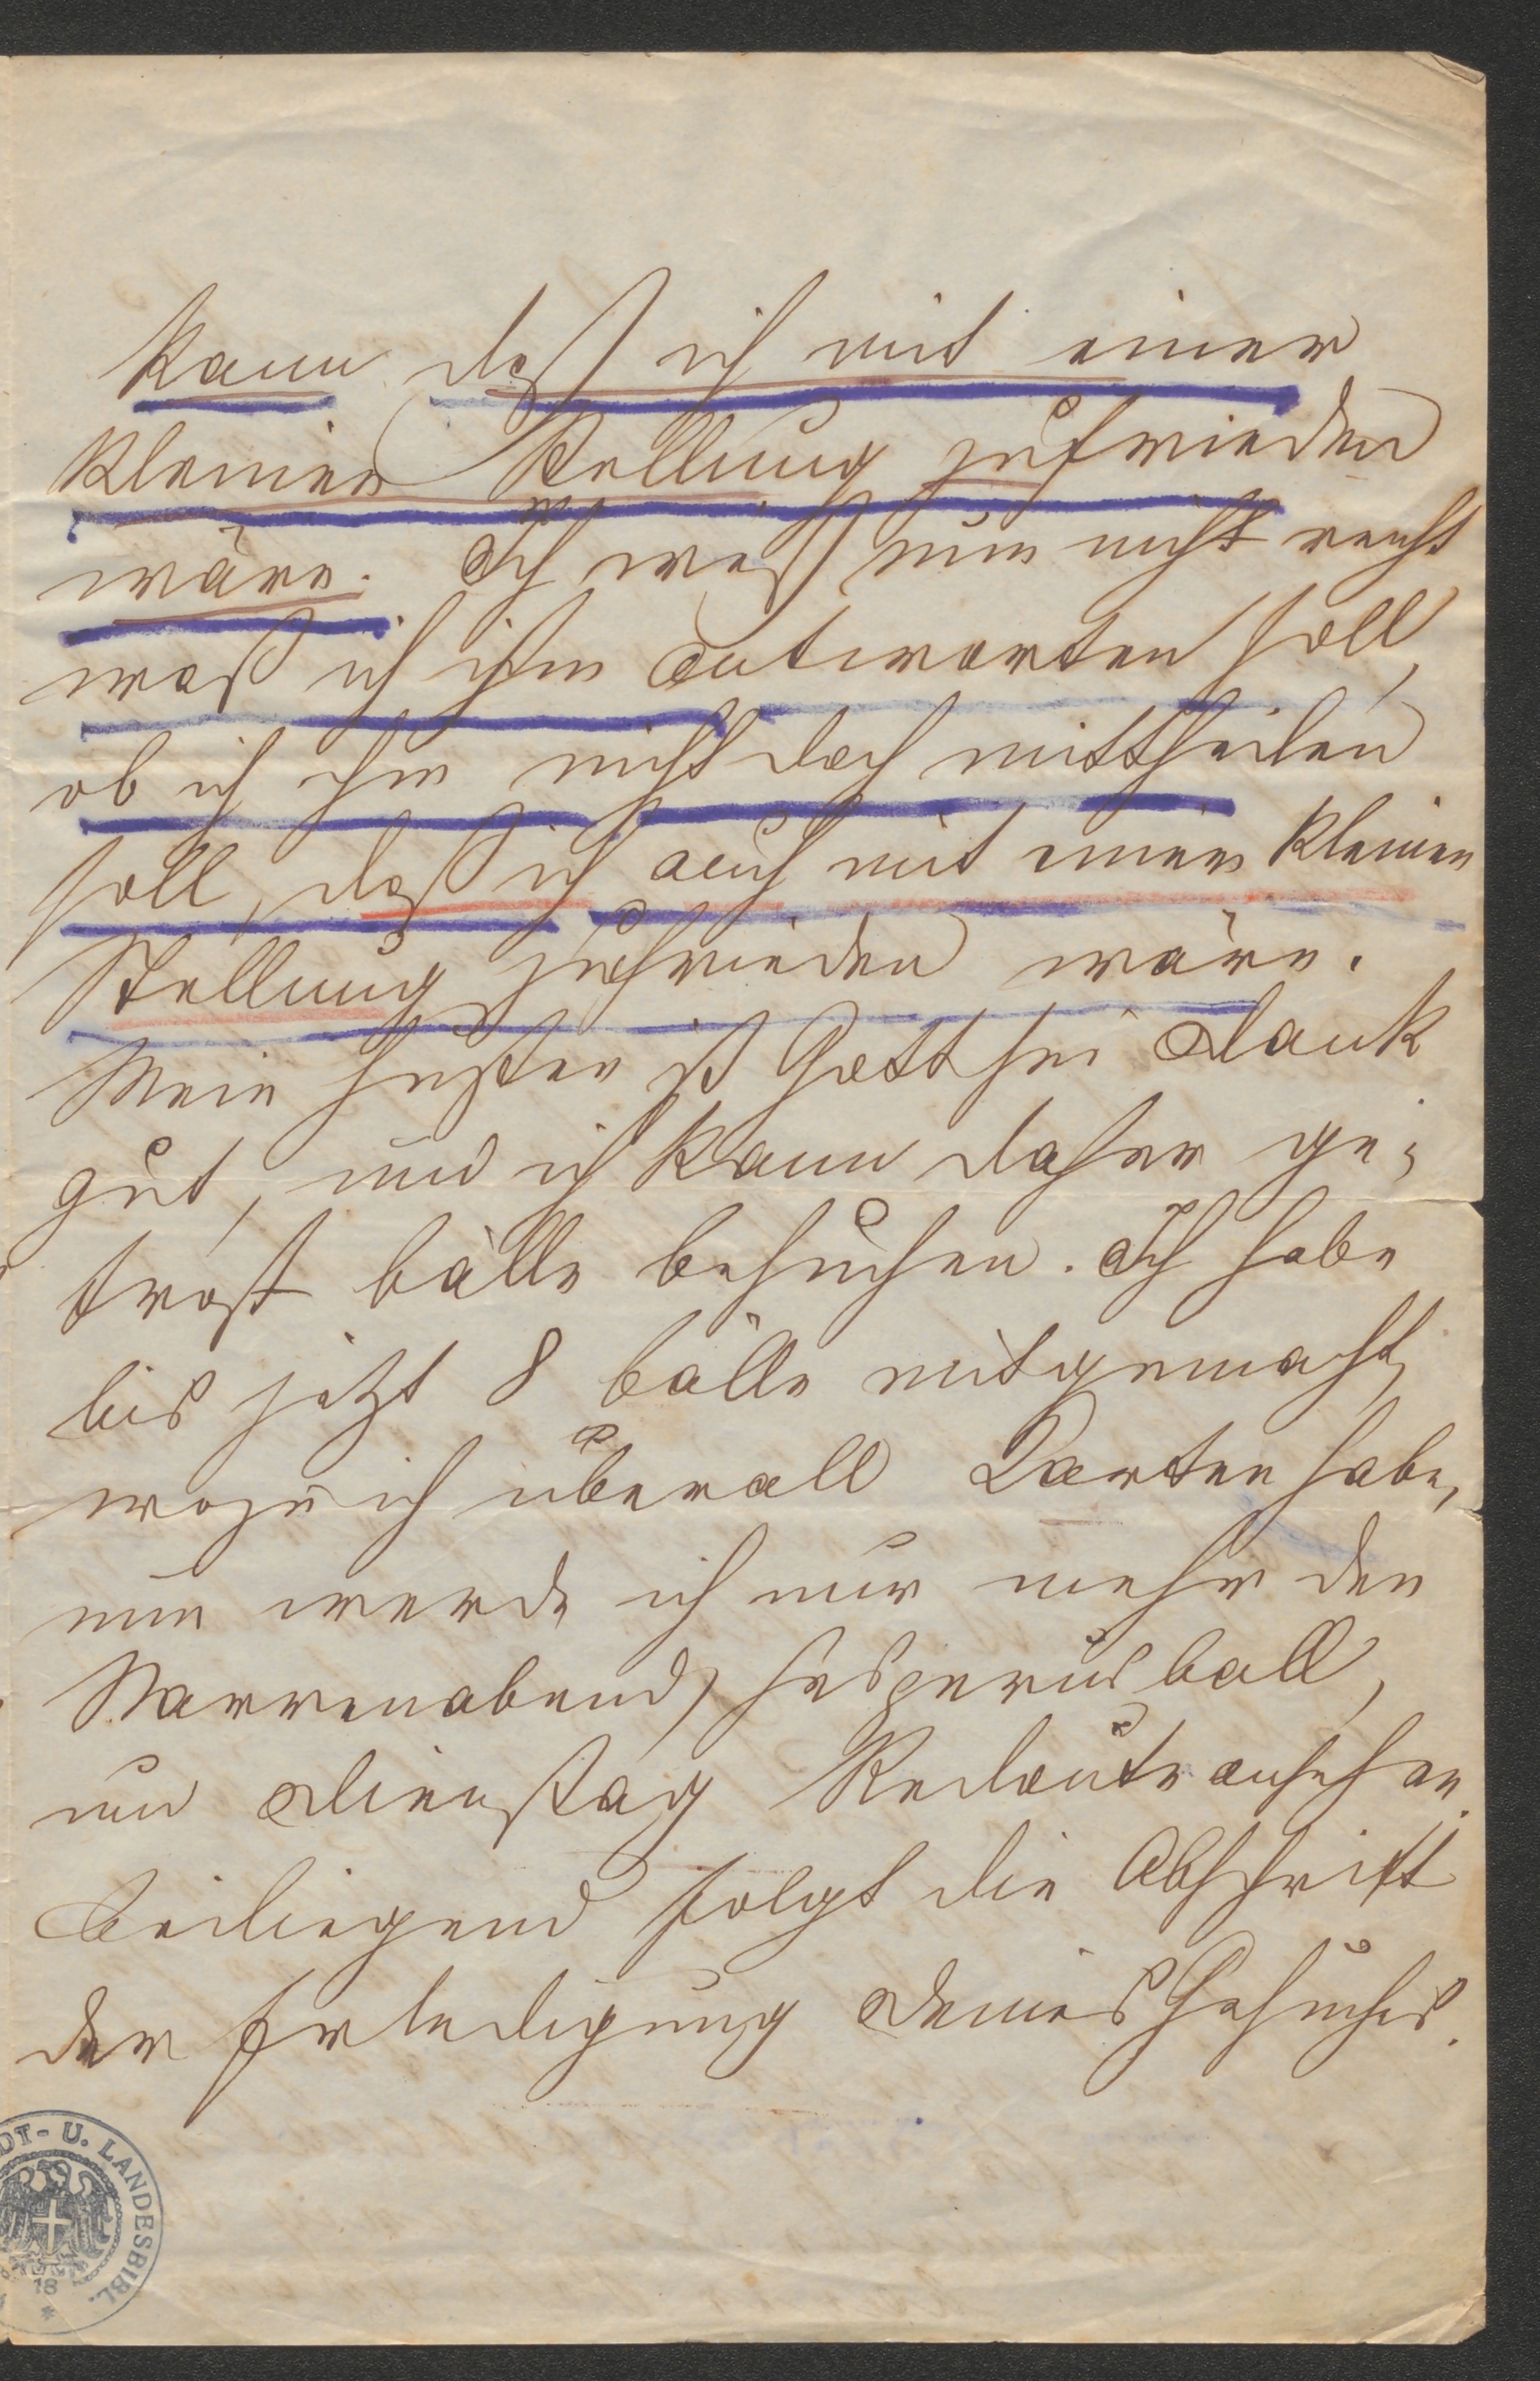 kann daß ich mit einer
kleinen Stellung zufrieden
wäre. Ich weiß nun nicht recht
was ich ihm antworten soll,
ob ich ihm nicht doch mittheilen
soll, daß ich auch mit einer kleinen
Stellung zufrieden wäre.
Mein Husten ist Gott sei Dank
gut, und ich kann daher ge-
trost bälle besuchen. Ich habe
bis jetzt 8 bälle mitgemacht,
wozu ich überall Karten habe,
nun werde ich nur mehr den
Narrenabend, Hesperusball,
und Dienstag Redoute ansehen.
Beiliegend folgt die Abschrift
der Erledigung deines Gesuches.
DT- U. LANDESBIBL.
18